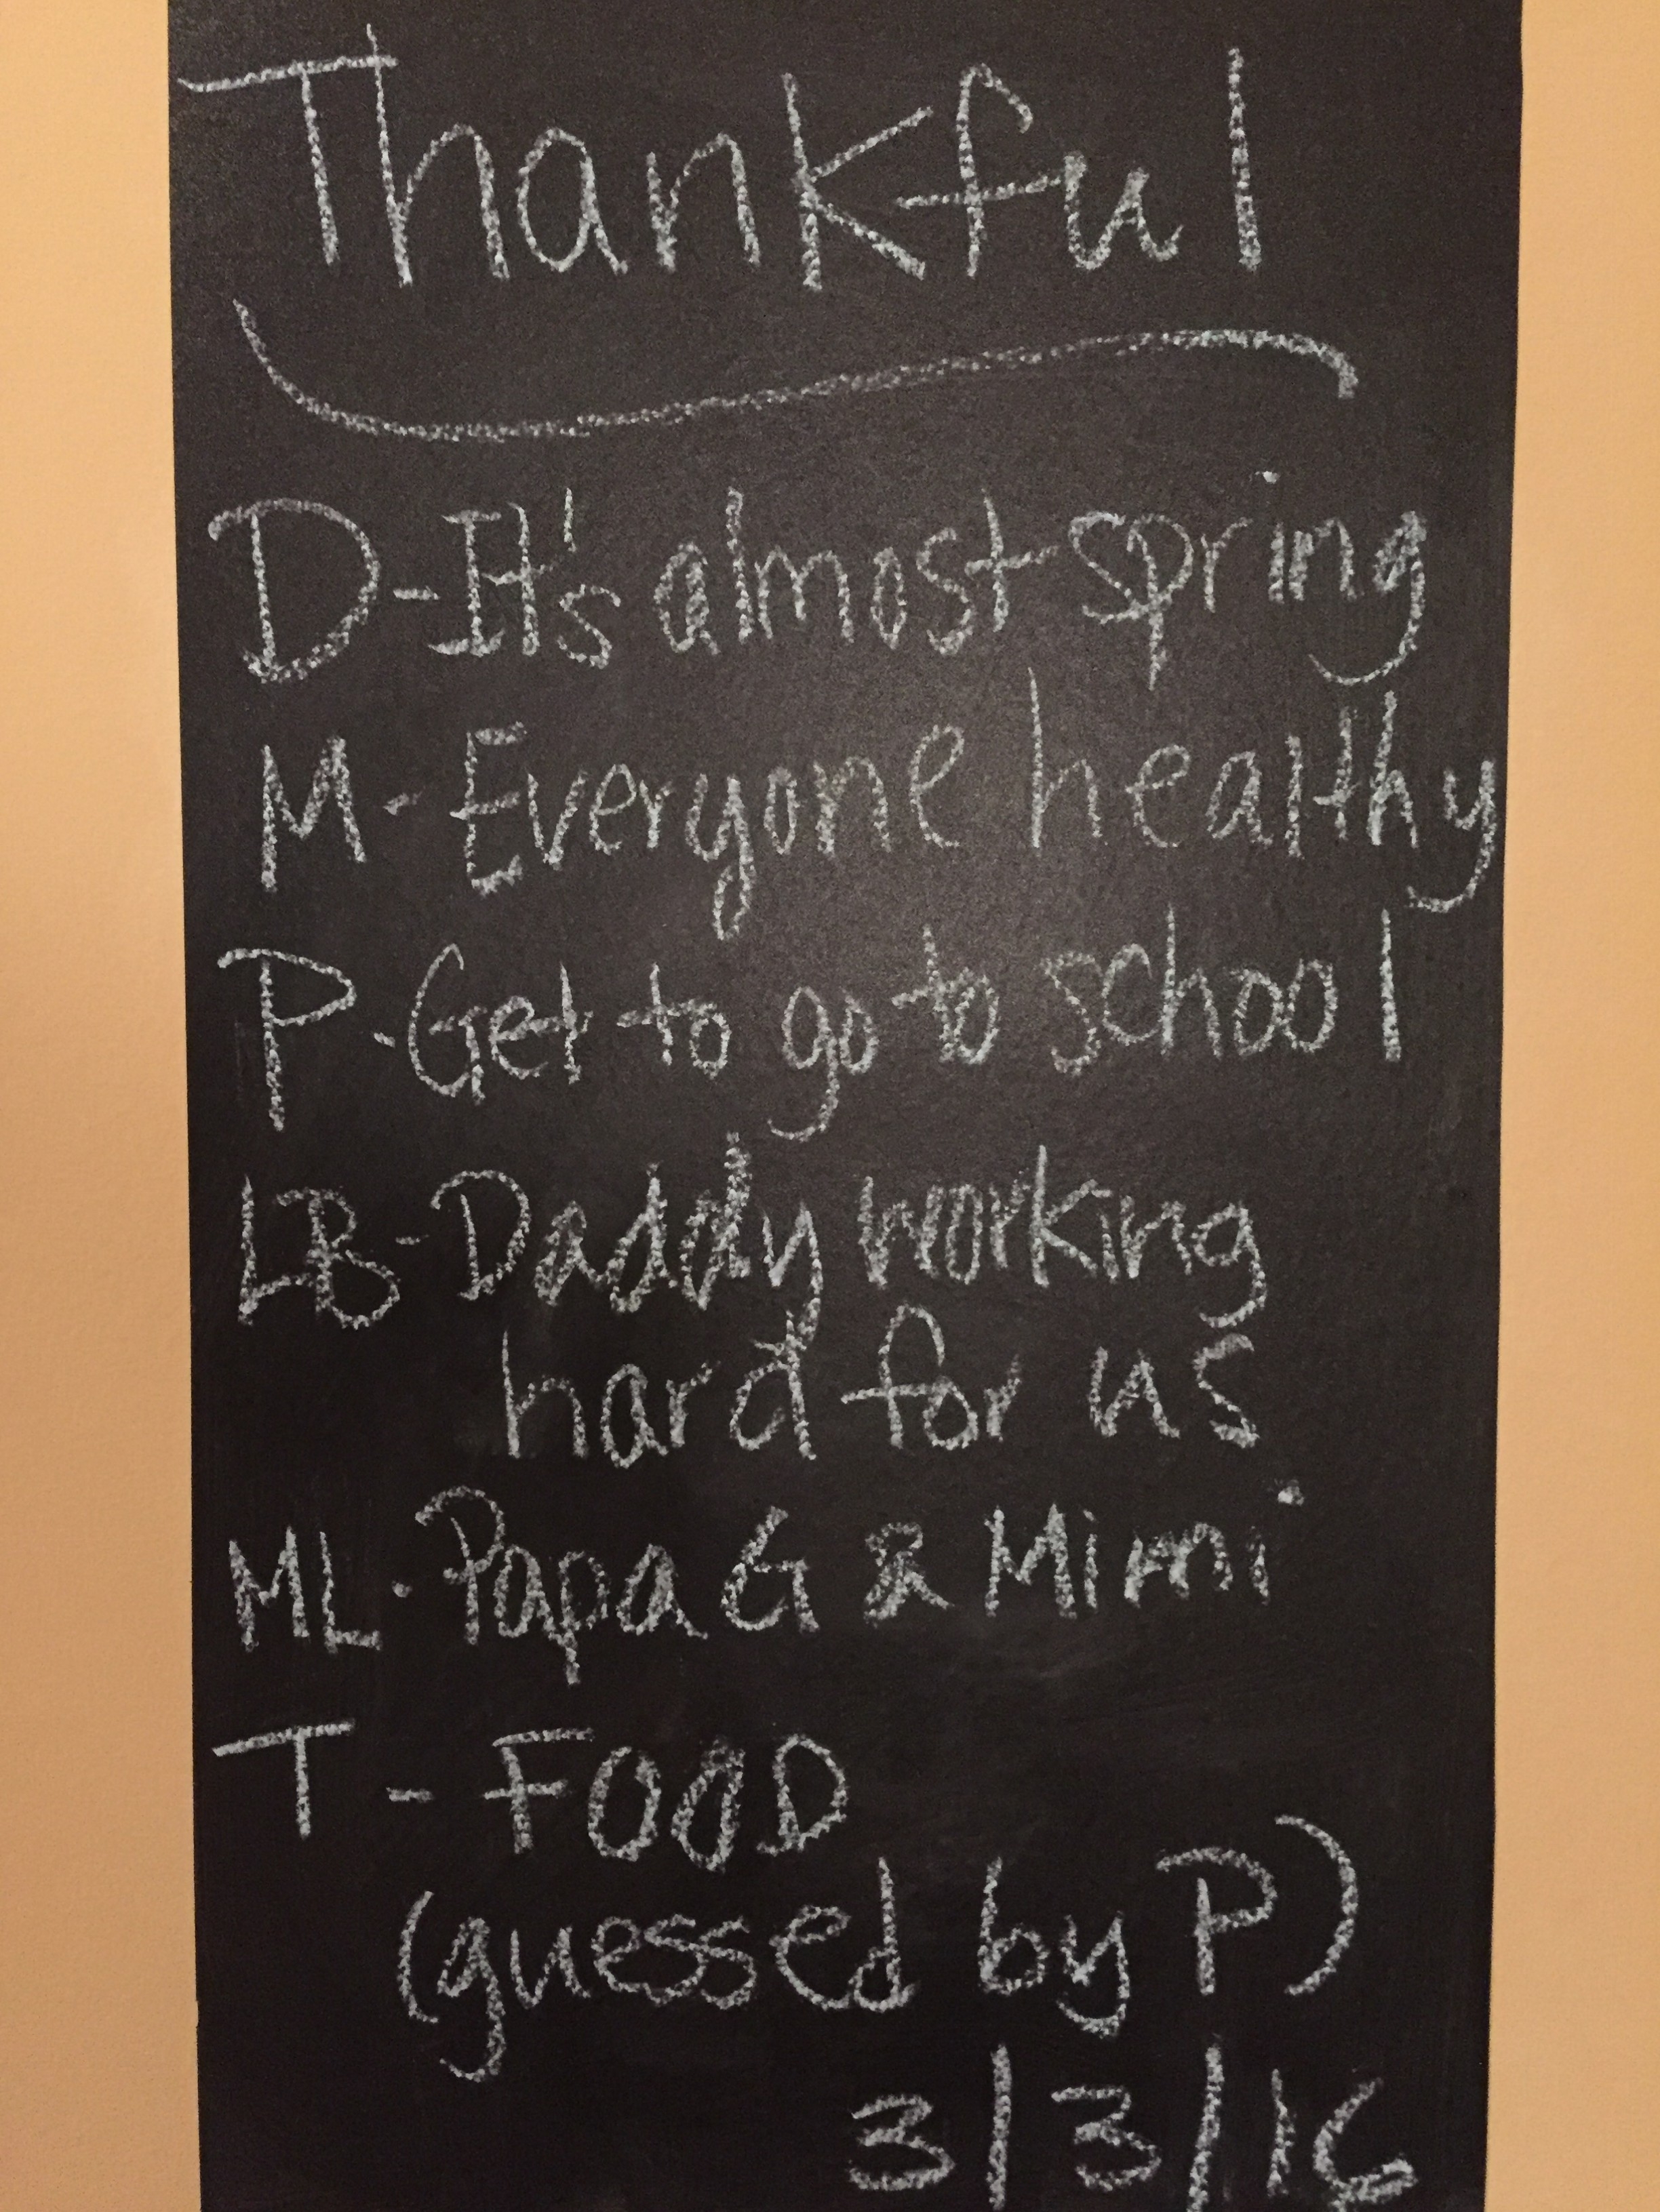 Thankful
D-It's almost spring
M-Everyone healthy
P-Get to go to school
LB-Daddy working
hard for us
ML-Papa G & Mimi
T-FOOD
(guessed by P)
3/3/16